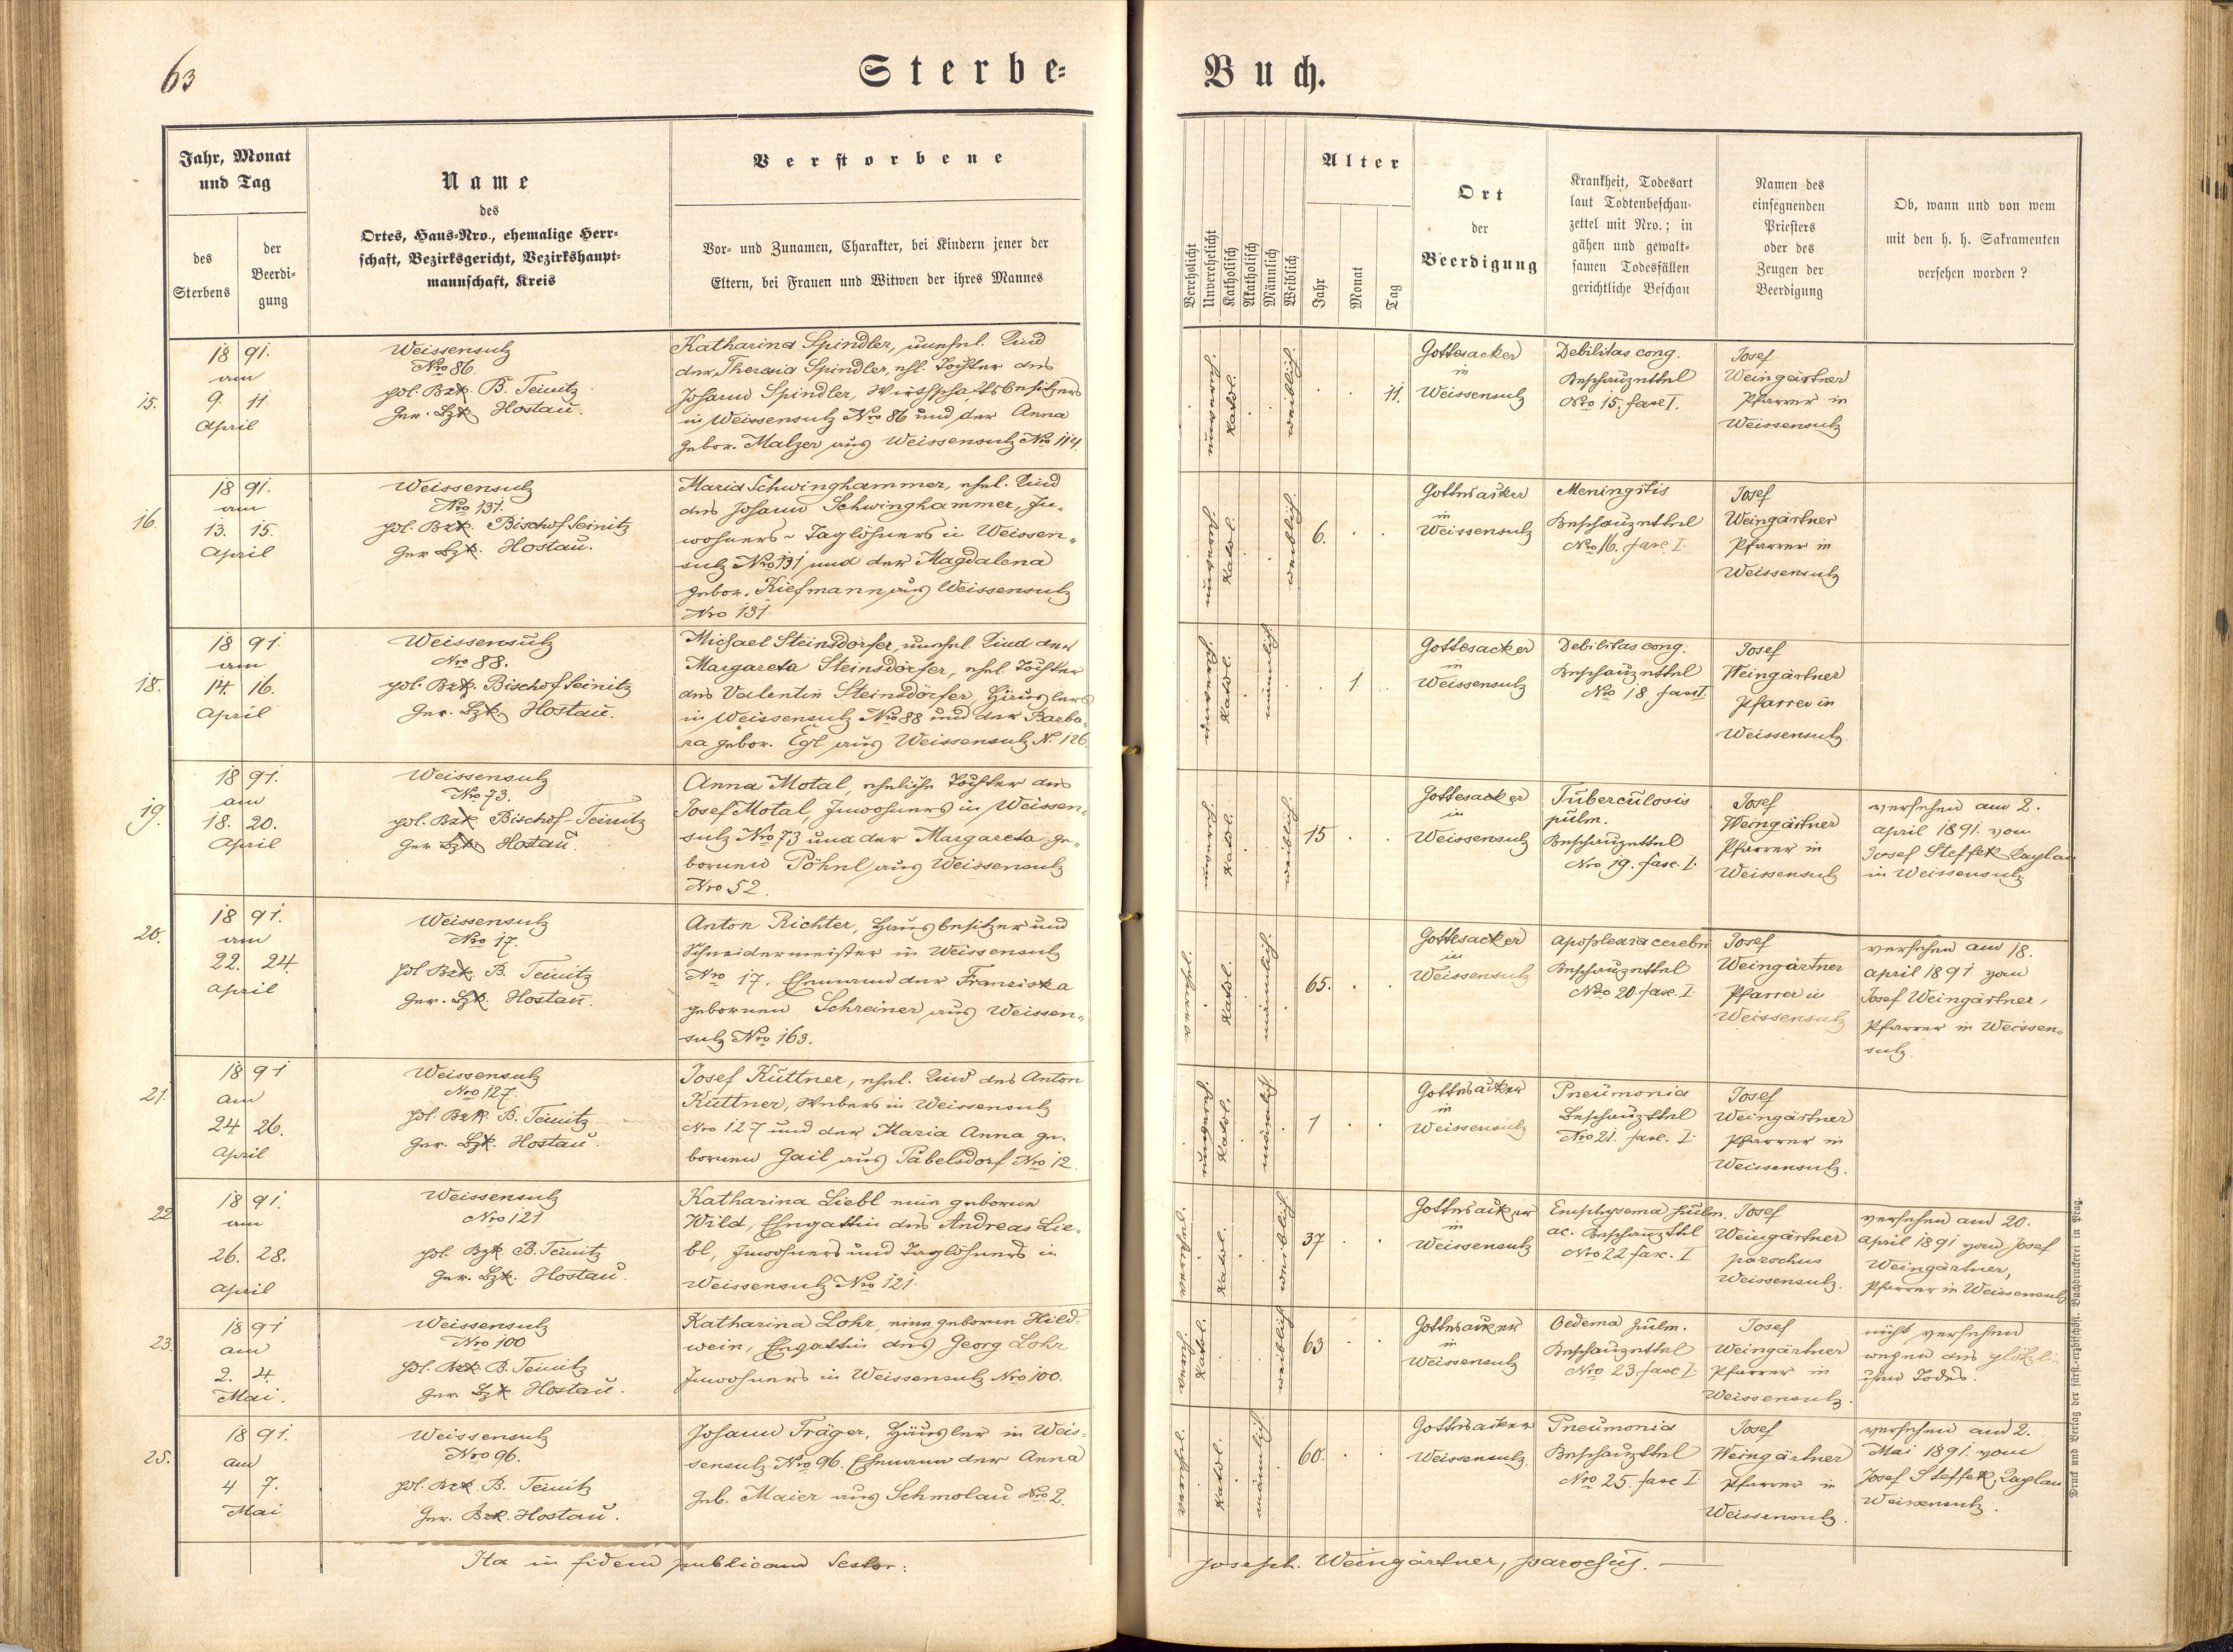 63
Sterbe-
Buch.
Jahr, Monat
und Tag
des
Sterbens
der
Beerdi-
gung
Name
des
Ortes, Haus-Nro., ehemalige Herr-
schaft, Bezirksgericht, Bezirkshaupt-
mannschaft, Kreis
Verstorbene
Vor- und Zunamen, Charakter, bei Kindern jener der
Eltern, bei Frauen und Witwen der ihres Mannes
Verehelicht
Unverehelicht
Katholisch
Akatholisch
Männlich
Weiblich
Alter
Jahr
Monat
Tag
Ort
der
Beerdigung
Krankheit, Todesart
laut Todtenbeschau-
zettel mit Nro.; in
gähen und gewalt-
samen Todesfällen
gerichtliche Beschau
Namen des
einsegnenden
Priesters
oder des
Zeugen der
Beerdigung
Ob, wann und von wem
mit den h. h. Sakramenten
versehen worden?
15.
1891.
am
9. 11
April
Weissensulz
Nro 86.
pol. Bzk. B. Teinitz
Ger. Bzk. Hostau.
Katharina Spindler, unehel. Kind
der Theresia Spindler, ehl. Tochter des
Johann Spindler, Wirthschaftsbesitzers
in Weissensulz Nro 86 und der Anna
gebor. Malzer aus Weissensulz Nro 114.
kathol.
weiblich.
11.
Gottesacker
in
Weissensulz
Debilitas cong.
Beschauzettel
Nro 15. fasc I.
Josef
Weingärtner
Pfarrer in
Weissensulz
16.
1891.
am
13. 15.
April
Weissensulz
Nro 131.
pol. Bzk. Bischof Teinitz
Ger Bzk. Hostau.
Maria Schwinghammer, ehel. Kind
des Johann Schwinghammer, In-
wohners - Taglöhners in Weissen-
sulz Nro 131 und der Magdalena
gebor. Kiefmann aus Weissensulz
Nro 131.
kathol.
weiblich.
6.
Gottesacker
in
Weissensulz
Meningitis
Beschauzettel
Nro 16. fasc I.
Josef
Weingärtner
Pfarrer in
Weissensulz
18.
1891.
am
14. 16.
April
Weissensulz
Nro 88.
pol. Bzk. Bischof Teinitz
Ger. Bzk. Hostau.
Michael Steinsdörfer, unehel Kind der
Margareta Steinsdörfer, ehel Tochter
des Valentin Steinsdörfer Häuslers
in Weissensulz Nro 88 und der Barba-
ra gebor. Egl aus Weissensulz N. 126
kathol.
männlich.
1
Gottesacker
in
Weissensulz
Debilitas cong.
Beschauzettel
Nro 18 fasc I.
Josef
Weingärtner
Pfarrer in
Weissensulz.
19.
1891.
am
18. 20.
April
Weissensulz
Nro 73.
pol. Bzk. Bischof-Teinitz
Ger Bzk Hostau.
Anna Motal, eheliche Tochter des
Josef Motal, Inwohners in Weissen-
sulz Nro 73 und der Margareta ge-
borenen Pöhnl aus Weissensulz
Nro 52.
kathol.
weiblich.
15
Gottesacker
in
Weissensulz
Tuberculosis
pulm.
Beschauzettel
Nro 19. fasc. I.
Josef
Weingärtner
Pfarrer in
Weissensulz
versehen am 2.
April 1891. von
Josef Steffek Kaplan
in Weissensulz.
20.
1891.
am
22. 24.
April
Weissensulz
Nro 17.
pol Bzk. B. Teinitz
Ger. Bzk. Hostau.
Anton Richter, Hausbesitzer und
Schneidermeister in Weissensulz
Nro 17. Ehemann der Franziska
gebornen Schreiner aus Weissen-
sulz Nro 163.
kathol.
männlich.
65.
Gottesacker
in
Weissensulz
Apoplexia cerebri
Beschauzettel
Nro 20. fasc. I.
Josef
Weingärtner
Pfarrer in
Weissensulz
versehen am 18.
April 1891 von
Josef Weingärtner,
Pfarrer in Weissen-
sulz.
21.
1891
am
24. 26.
April
Weissensulz
Nro 127.
pol. Bzk. B. Teinitz
Ger. Bzk. Hostau.
Josef Küttner, ehel. Kind des Anton
Küttner, Webers in Weissensulz
Nro 127 und der Maria Anna ge-
bornen Gail aus Tabelsdorf Nro 12.
kathol.
männlich
1
Gottesacker
in
Weissensulz
Pneumonia
Beschauzttel
Nro 21. fasc. I.
Josef
Weingärtner
Pfarrer in
Weissensulz.
22
1891.
am
26. 28.
April
Weissensulz
Nro 121
pol. Bzk B. Teinitz
Ger. Bzk. Hostau.
Katharina Liebl eine geborene
Wild, Ehegattin des Andreas Lie-
bl, Inwohners und Taglöhners in
Weissensulz Nro 121.
kathol.
weiblich.
37
Gottesacker
in
Weissensulz
Emphysema pulm.
ac. Beschauzttel
Nro 22 fasc. I
Josef
Weingärtner
parochus
Weissensulz.
versehen am 20.
April 1891 von Josef
Weingärtner,
Pfarrer in Weissensulz
23.
1891
am
2. 4.
Mai.
Weissensulz
Nro 100
pol. Bzk B. Teinitz
Ger Bzk Hostau.
Katharina Lohr, eine geborene Hild-
wein, Ehegattin des Georg Lohr
Inwohners in Weissensulz Nro 100.
kathol.
weiblich
63
Gottesacker
in
Weissensulz
Oedema pulm.
Beschauzettel
Nro 23 fasc I.
Josef
Weingärtner
Pfarrer in
Weissensulz.
nicht versehen
wegen des plötzli-
chen Todes.
25.
1891.
am
4 7.
Mai
Weissensulz
Nro 96.
pol. Bzk. B. Teinitz
Ger. Bzk. Hostau.
Johann Träger, Häusler in Weis-
sensulz Nro 96. Ehemann der Anna
geb. Maier aus Schmolau Nro 2.
kathol.
männlich.
60.
Gottesacker
Weissensulz.
Pneumonia
Beschauzttel
Nro 25. fasc I.
Josef
Weingärtner
Pfarrer in
Weissensulz.
versehen am 2.
Mai 1891. von
Josef Steffek, Kaplan
Weissensulz.
Ita in fidem publicam testor:
Joseph. Weingärtner, parochus.
Druck und Verlag der fürst.-erzbischöfl. Buchdruckerei in Prag.